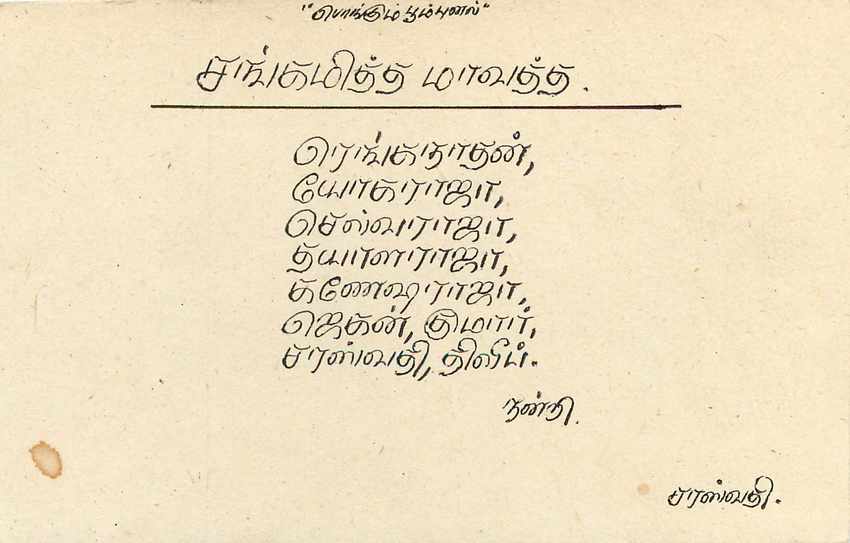 "பொங்கும் பூம்புனல்"
சங்கமித்த மாவத்த.
ரெங்கநாதன்,
யோகராஜா,
செல்வராஜா,
தயாளராஜா,
கணேஷராஜா,
ஜெகன், குமார்,
சரஸ்வதி, திலீப்.
நன்றி.
சரஸ்வதி.